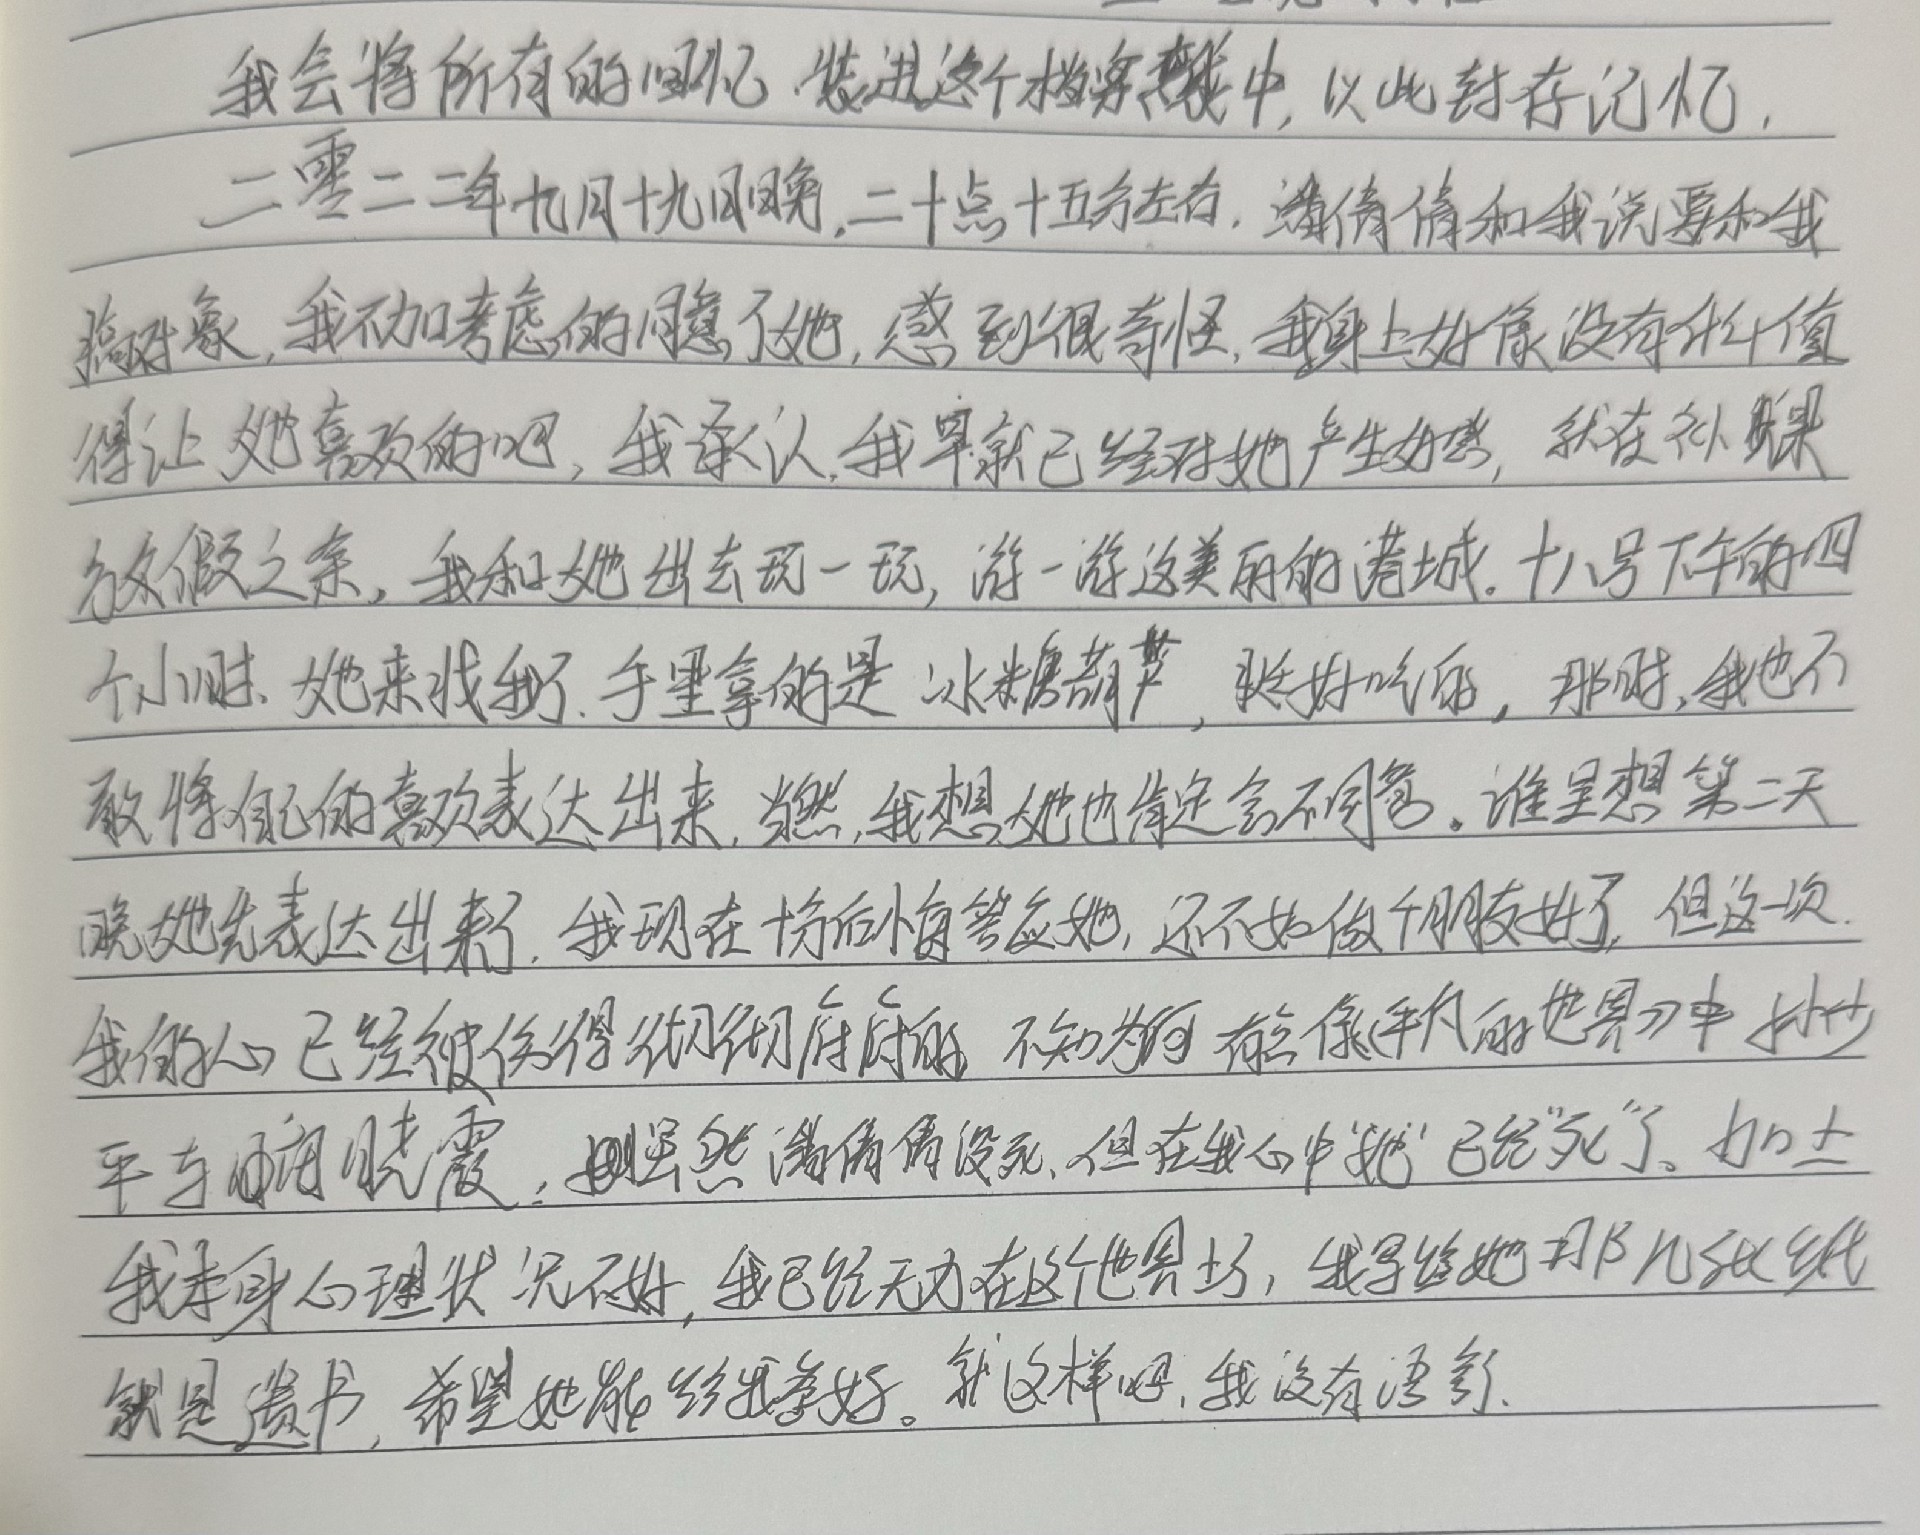 我会将所有的回忆装进这个档案袋中,以此封存记忆,
二零二二年九月十九日晚,二十点十五分左右,潘倩倩和我说要和我
搞对象,我不加考虑的同意了她,感到很奇怪,我身上好像没有什么值
得让她喜欢的吧,我承认,我早就已经对她产生好感,就在补课
放假之余,我和她出去玩一玩,游一游这美丽的港城。十八号下午的四
个小时、她来找我了.手里拿的是冰糖葫芦,挺好吃的,那时,我也不
敢将自己的喜欢表达出来,当然,我想她也肯定会不同意。谁是想第二天
晚她先表达出来了.我现在十分后悔答应她,还不如做个朋友好了,但这一次.
我的心已经被伤得彻彻底底的 不知为何 有点像《平凡的世界》中 孙少
平与田晓霞,虽然潘倩倩没死、但在我心中"她"已经"死"了。加上
我本身心理状况不好,我已经无力在这个世界上了,我写给她那几张纸
就是遗书,希望她能给我拿好。就这样吧,我没有语言了.